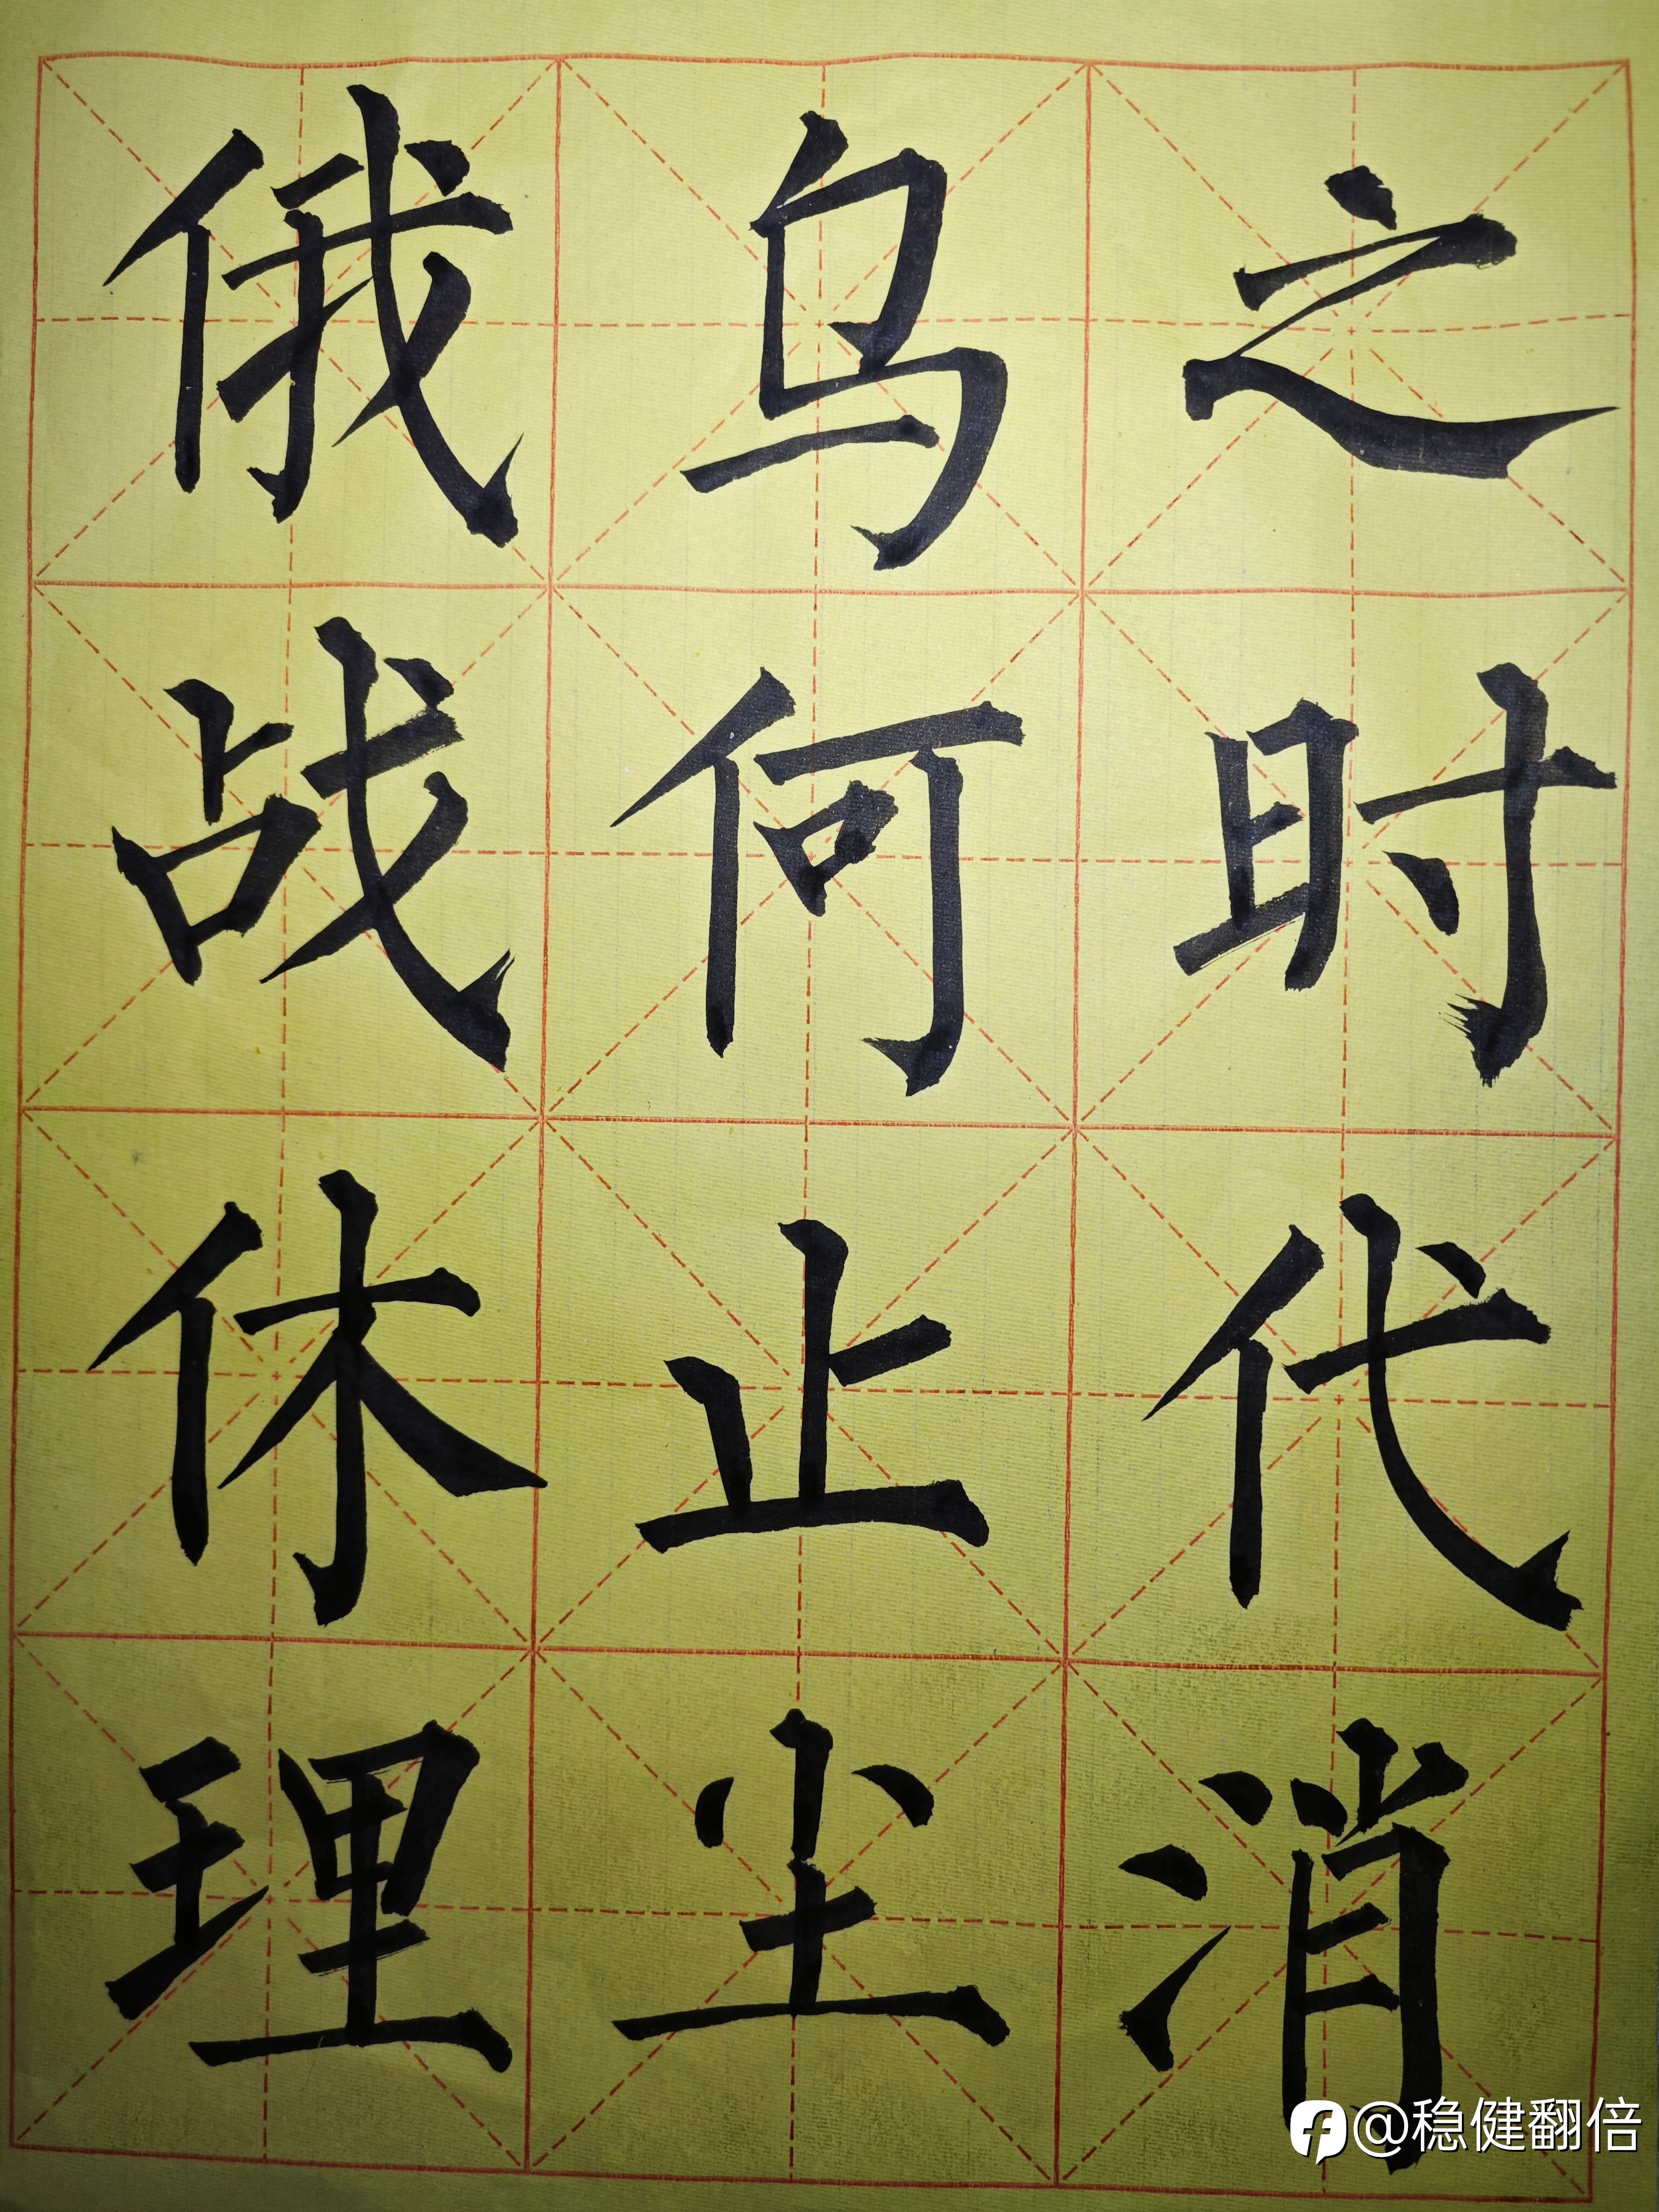 俄乌之
战何时
休止代
理尘消
@稳健翻倍